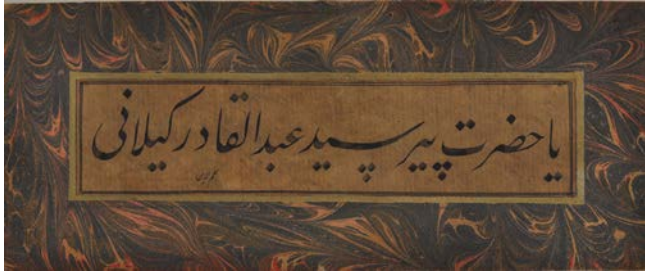 يا حضرت پير سيد عبدالقادر كيلانى